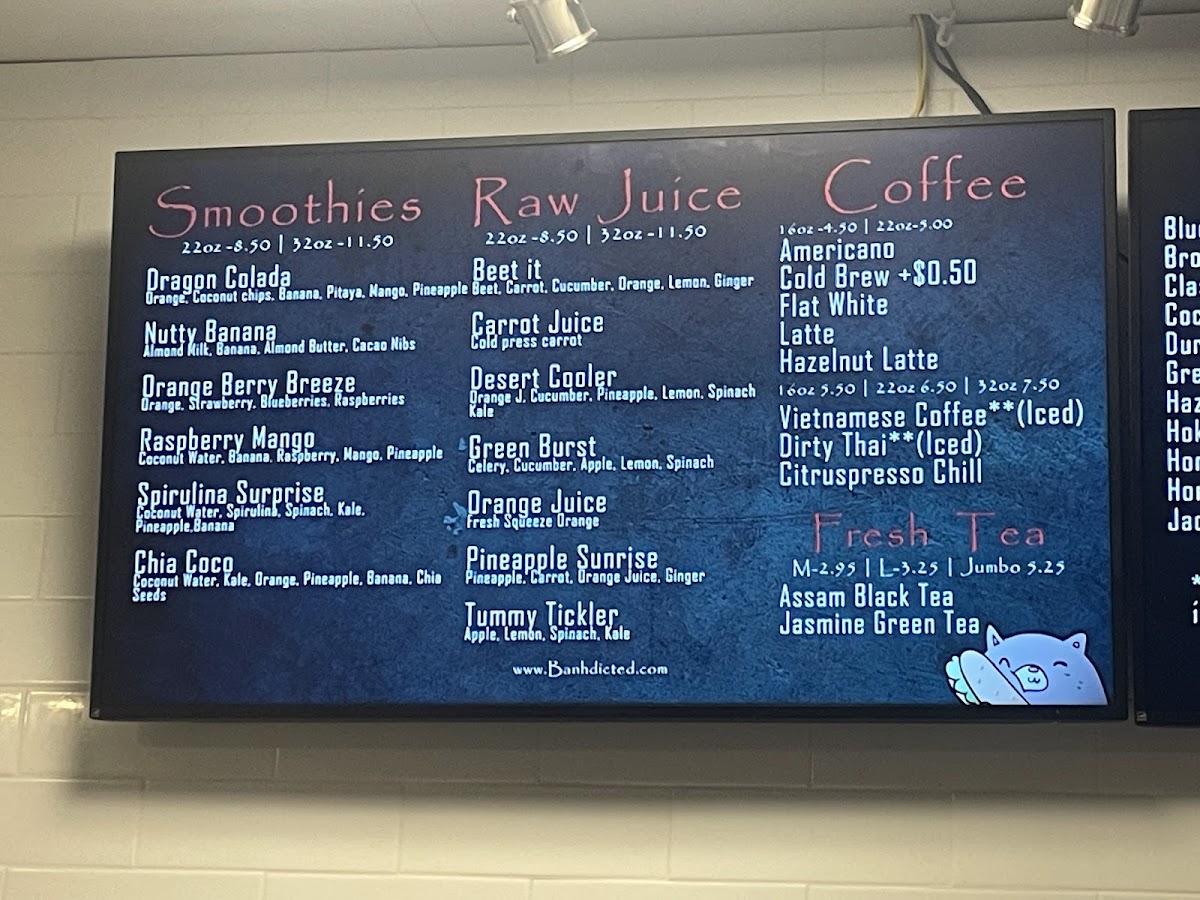 Smoothies
22oz-8.50 | 32oz-11.50
Dragon Colada
Orange, Coconut chips, Banana, Pitaya, Mango, Pineapple
Nutty Banana
Almond Milk, Banana, Almond Butter, Cacao Nibs
Orange Berry Breeze
Orange, Strawberry, Blueberries, Raspberries
Raspberry Mango
Coconut Water, Banana, Raspberry, Mango, Pineapple
Spirulina Surprise
Coconut Water, Spirulina, Spinach, Kale,
Pineapple,Banana
Chia Coco
Coconut Water, Kale, Orange, Pineapple, Banana, Chia
Seeds
Raw Juice
22oz-8.50 | 32oz-11.50
Beet it
Beet, Carrot, Cucumber, Orange, Lemon, Ginger
Carrot Juice
Cold press carrot
Desert Cooler
Orange J, Cucumber, Pineapple, Lemon, Spinach
Kale
Green Burst
Celery, Cucumber, Apple, Lemon, Spinach
Orange Juice
Fresh Squeeze Orange
Pineapple Sunrise
Pineapple, Carrot, Orange Juice, Ginger
Tummy Tickler
Apple, Lemon, Spinach, Kale
www.Banhdicted.com
Coffee
16oz-4.50 | 22oz-5.00
Americano
Cold Brew +$0.50
Flat White
Latte
Hazelnut Latte
16oz 5.50 | 22oz 6.50 | 32oz 7.50
Vietnamese Coffee**(Iced)
Dirty Thai**(Iced)
Citruspresso Chill
Fresh Tea
M-2.95 | L-3.25 | Jumbo 5.25
Assam Black Tea
Jasmine Green Tea